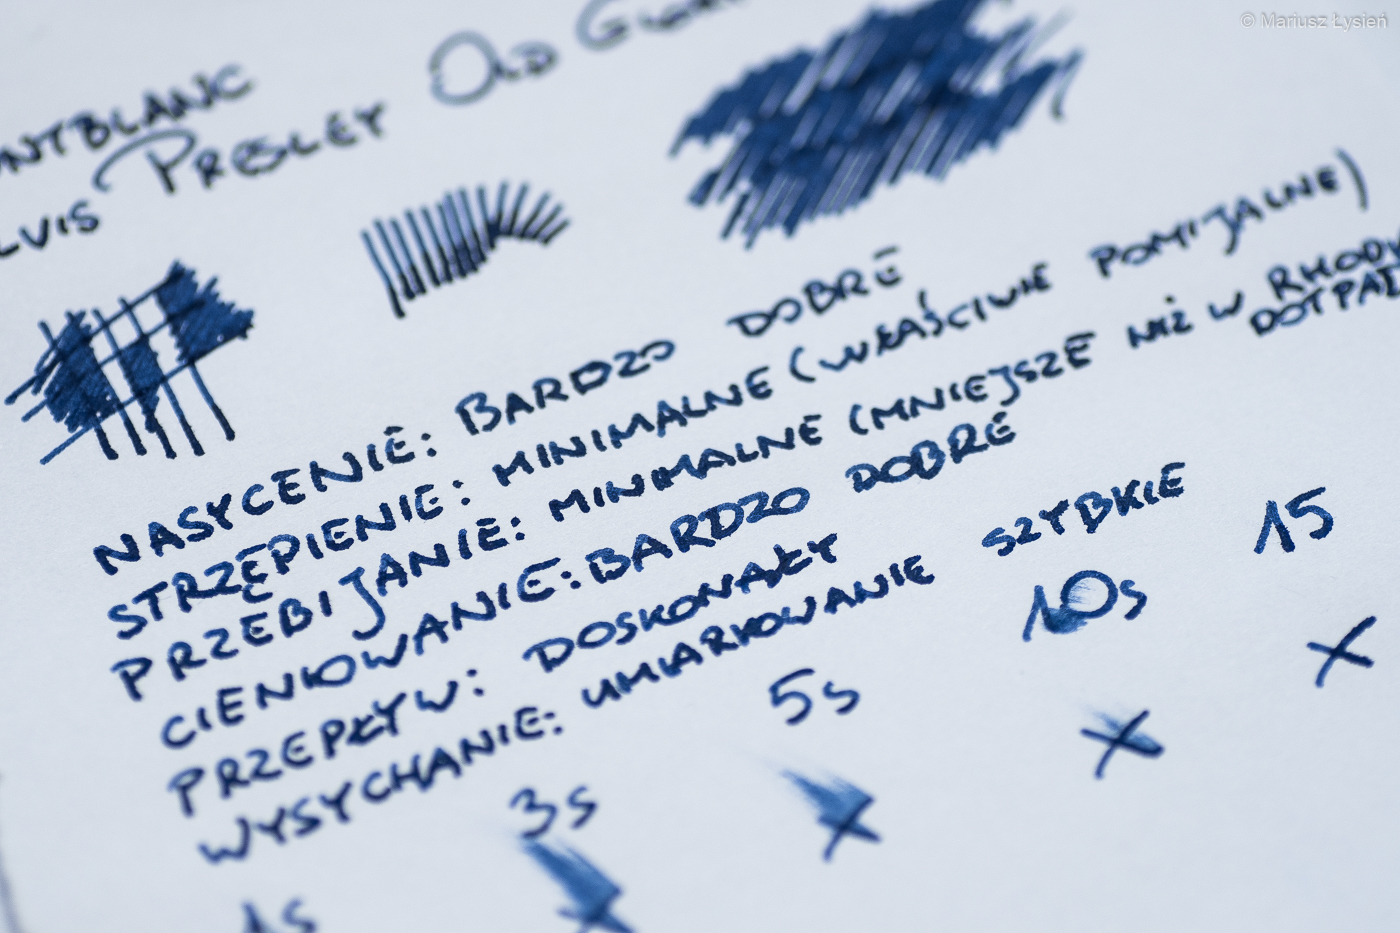 © Mariusz Łysień
OLD
PRESLEY
NASYCENIE: BARDZO DOBRE
STRZĘPIENIE: MINIMALNE (WŁAŚCIWIE POMIJALNE)
PRZEBIJANIE: MINIMALNE (MNIEJSZE NIŻ W
CIENIOWANIE: BARDZO DOBRE
PRZEPŁYW: DOSKONAŁY
WYSYCHANIE: UMIARKOWANIE SZYBKIE
1s 3s 5s 10s 15